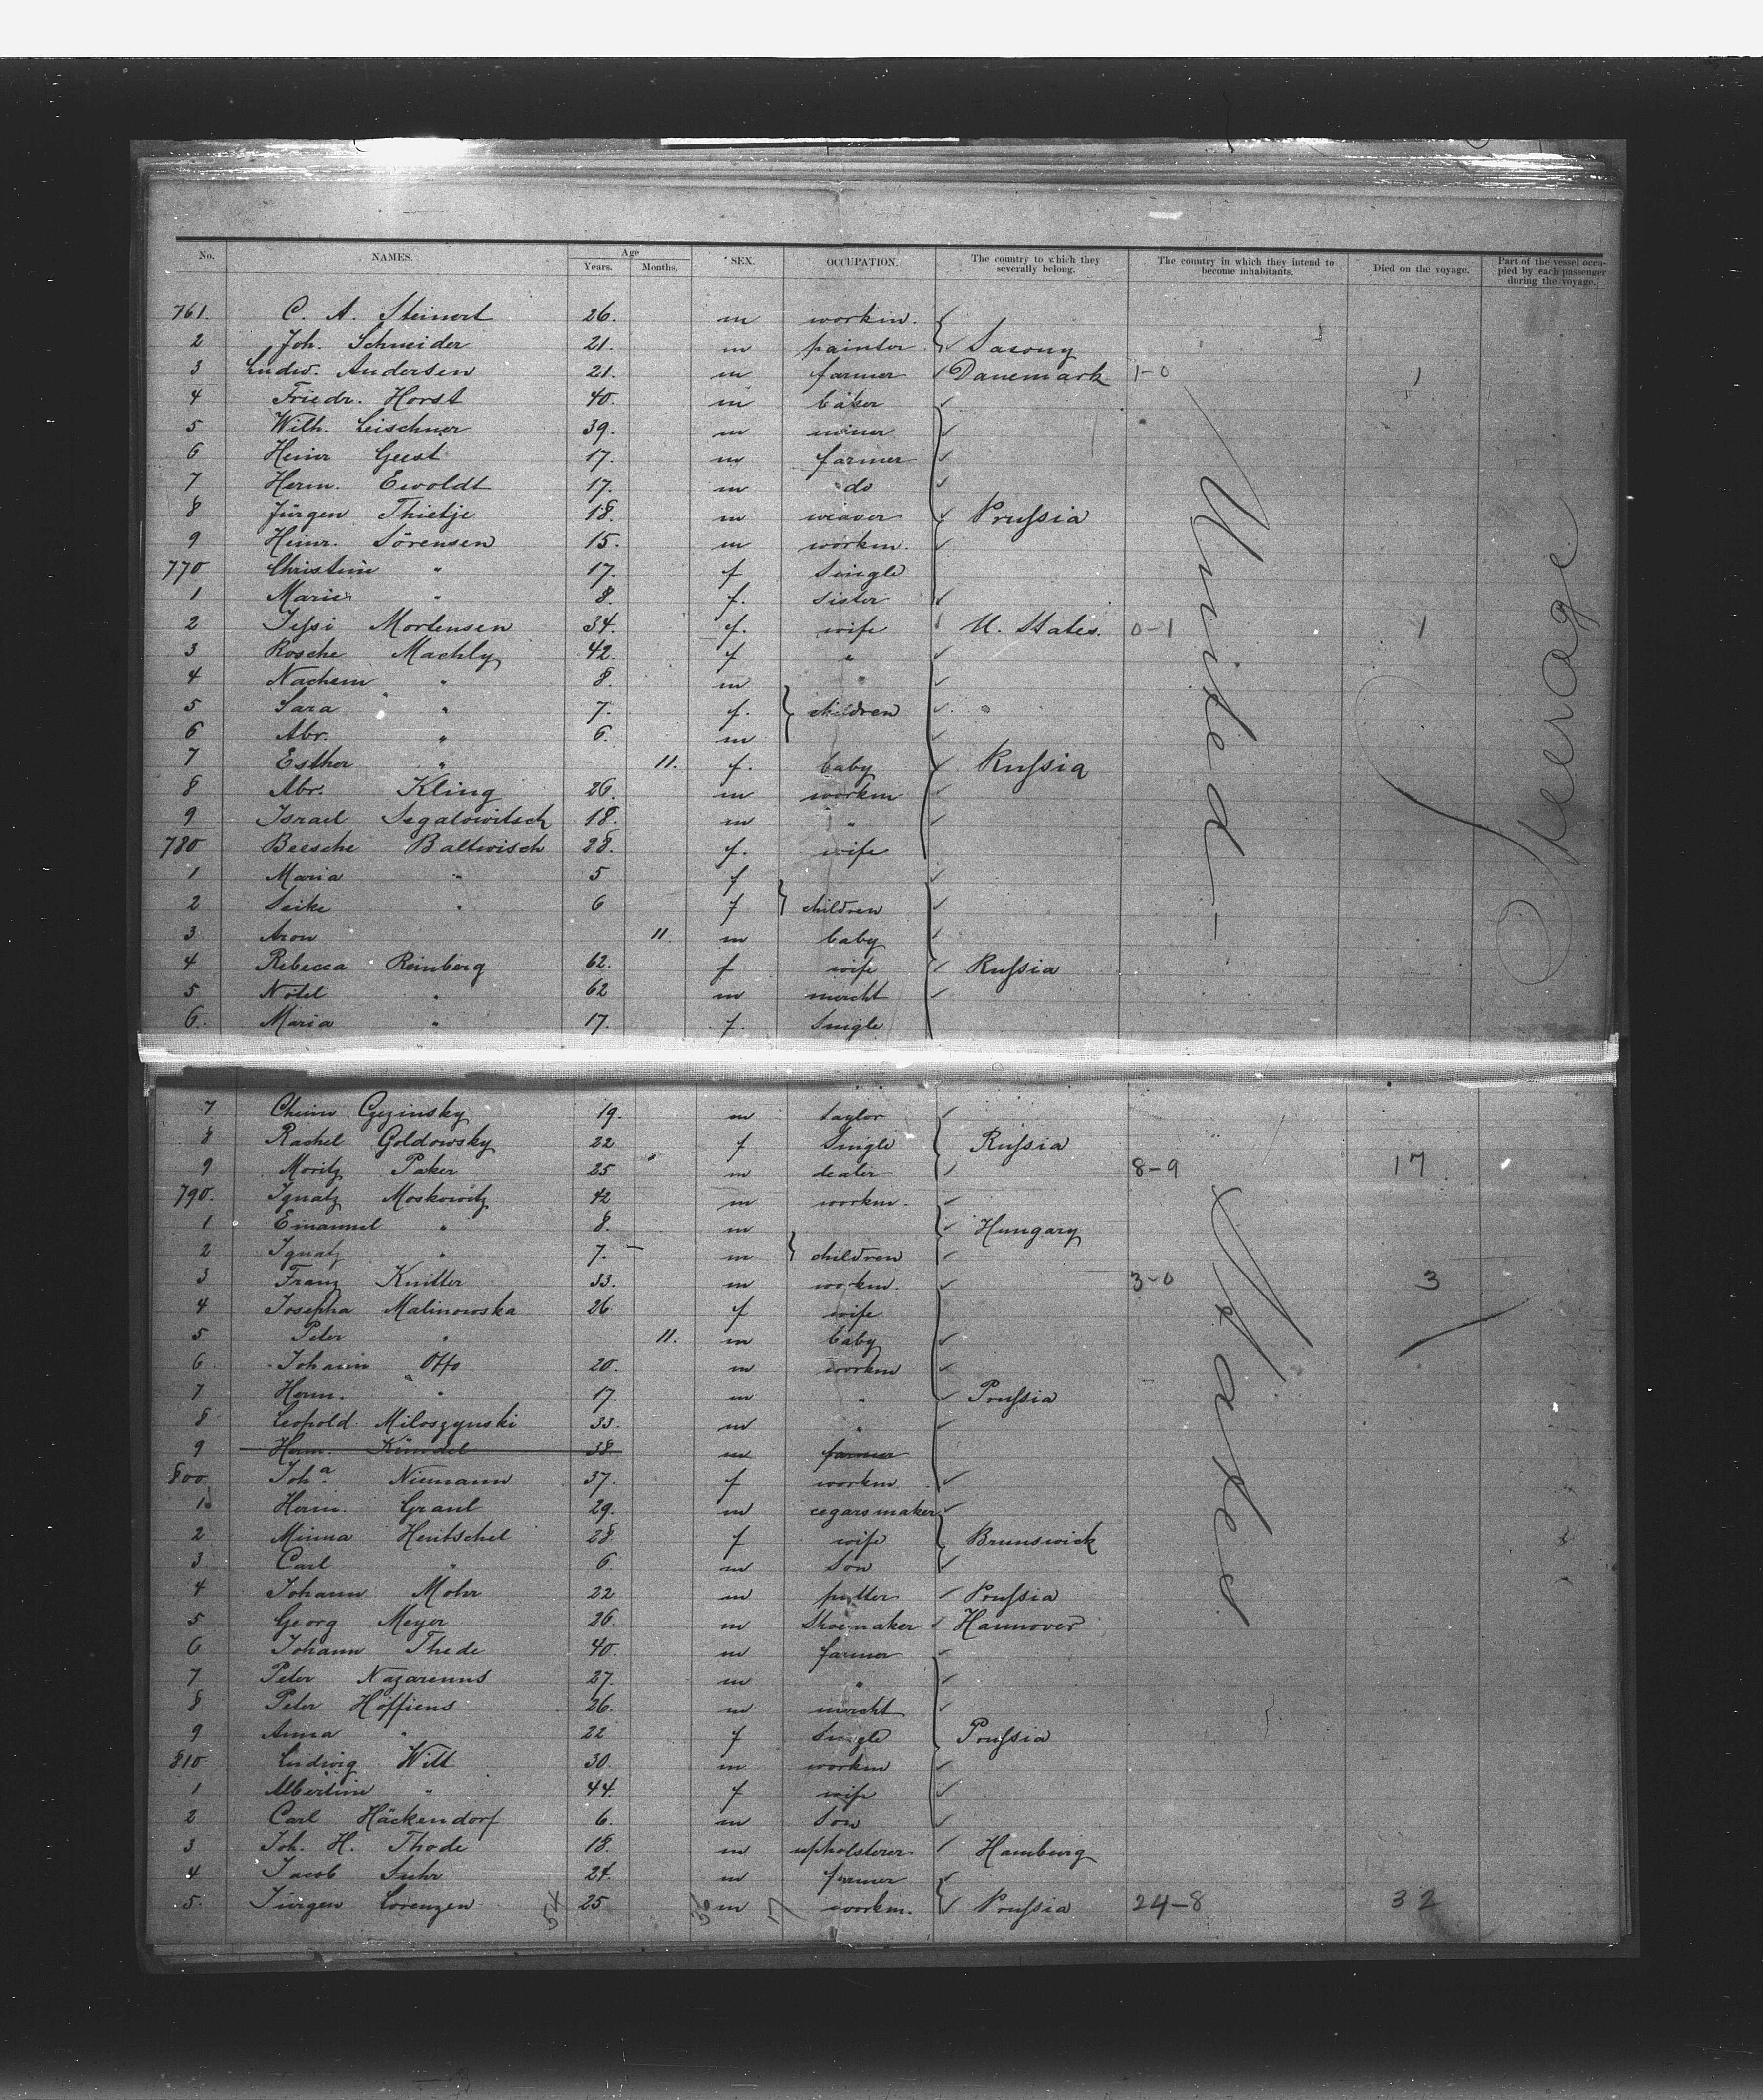 No. NAMES. Age Years. Months. SEX. OCCUPATION. The country to which they severally belong. The country in which they intend to become inhabitants. Died on the voyage. Part of the vessel occupied by each passenger during the voyage.
761. C. A. Steinert 26. m workm.
2 Joh. Schneider 21. m painter Saxony
3 Ludw. Andersen 21. m farmer Danemark 1-0 1
4 Friedr. Horst 40. m baker
5 Wilh. Leischner 39. m miner
6 Heinr Geest 17. m farmer
7 Herm. Ewoldt 17. m do
8 Jürgen Thietje 18. m weaver Prussia
9 Heinr. Sörensen 15. m workm.
770 Christine " 17. f Single
1 Marie " 8. f. Sister
2 Jessi Mortensen 34. f. wife U. States. 0-1 1
3 Rosche Machly 42. f "
4 Nachem " 8. m
5 Sara " 7. f. children
6 Abr. " 6. m
7 Esther " 11. f. baby Russia
8 Abr. Kling 26. m workm
9 Israel Segalowitsch 18. m "
780 Beesche Baltwisch 28. f. wife
1 Maria " 5 f
2 Seike " 6 f children
3 Aron 11. m baby
4 Rebecca Reinberg 62. f wife Russia
5 Nötel " 62 m mercht
6. Maria " 17. f. Single
7 Cheim Gezinsky 19. m taylor
8 Rachel Goldowsky 22 f Single Russia
9 Moritz Paker 25 m dealer 8-9 17
790. Ignatz Moskowitz 42 m workm.
1 Emanuel " 8. m Hungary
2 Ignatz " 7. m children
3 Franz Knitter 33. m workm. 3-0 3
4 Josepha Malinowska 26. f wife
5 Peter " 11. m baby
6 Johann Otto 20. m workm
7 Herm. " 17. m " Prussia
8 Leopold Miloszynski 33. m "
9 Herm. Kündel 38. m farmer
800 Joha Niemann 37. f workm
1 Herm. Graul 29. m cegarsmaker
2 Minna Hentschel 28 f wife Brunswick
3 Carl " 6. m Son
4 Johann Mohr 22 m putter Prussia
5 Georg Meyer 26. m Shoemaker Hannover
6 Johann Thede 40. m farmer
7 Peter Nazarenus 27. m "
8 Peter Höffiens 26. m mercht
9 Anna " 22 f Single Prussia
810 Ludwig Witt 30. m workm
1 Albertine " 44. f wife
2 Carl Häckendorf 6. m Son
3 Joh. H. Thode 18. m upholsterer Hamburg
4 Jacob Suhr 24. m farmer
5. Jürgen Lorenzen 25 m workm. Prussia 24-8 32
United States
Steerage